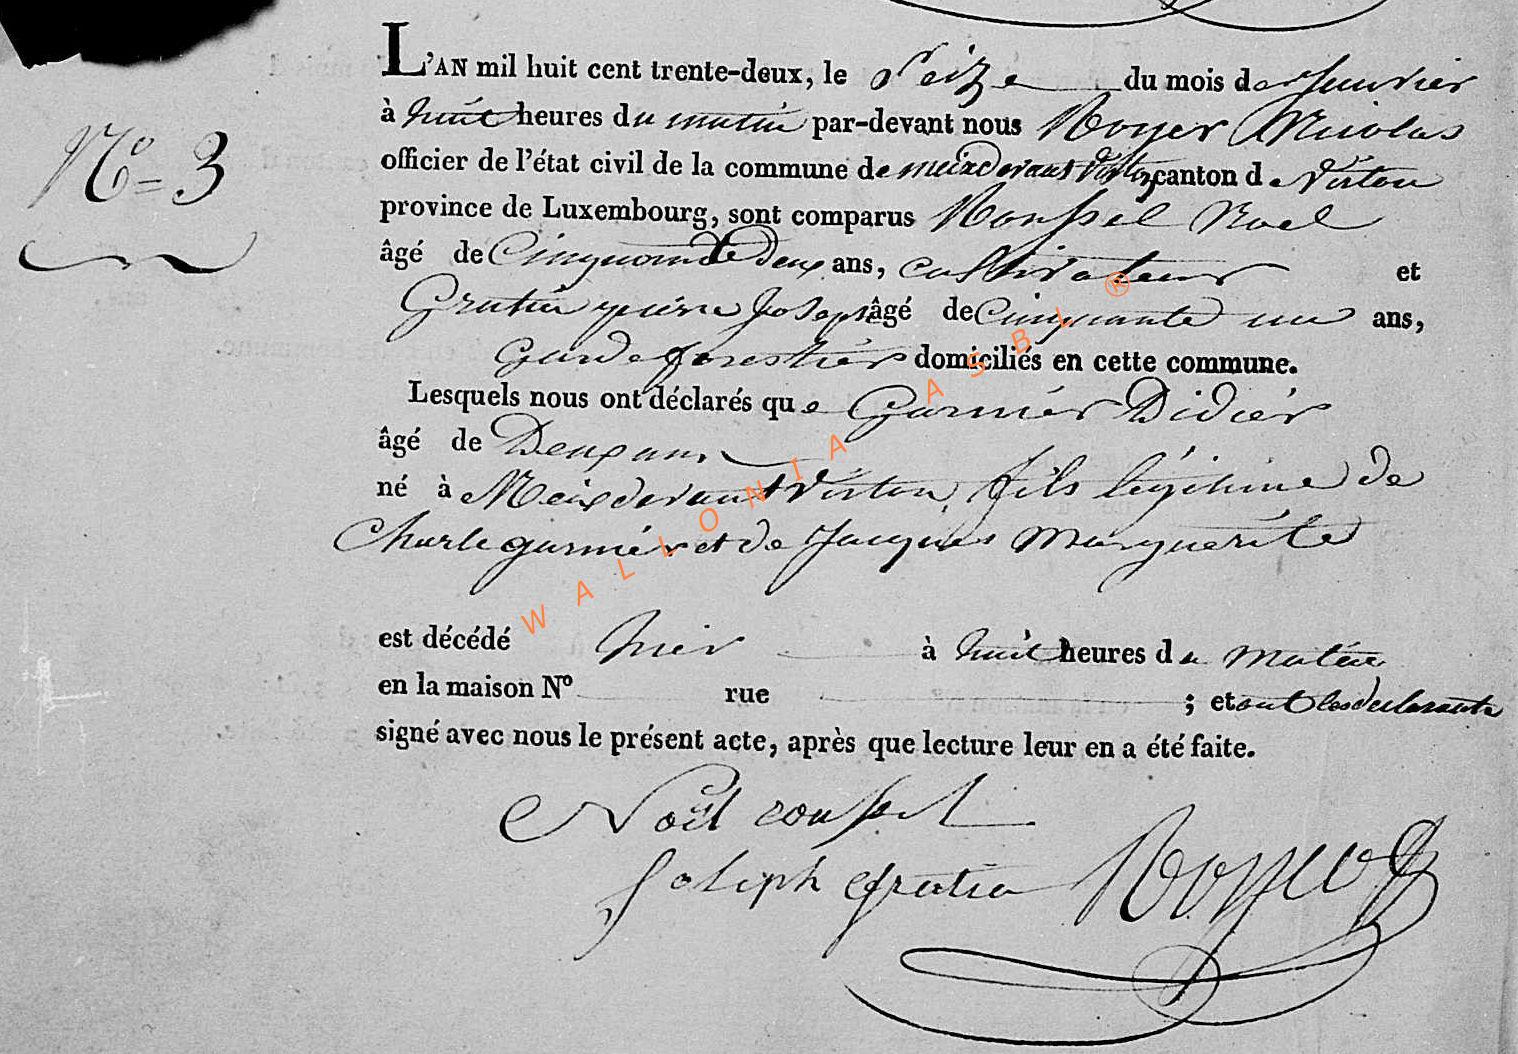 L'AN mil huit cent trente-deux, le Seize du mois de Janvier
N° 3
à huit heures du matin par-devant nous Royer Nicolas
officier de l'état civil de la commune de meix devant Virton canton de Virton
province de Luxembourg, sont comparus Roussel Noel
âgé de Cinquante Deux ans, cultivateur et
Gratia pierre Joseph âgé de Cinquante un ans,
Garde forestier domiciliés en cette commune.
Lesquels nous ont déclarés que Garnier Didier
âgé de Deux ans,
né à Meix devant Virton, fils légitime de
Charle garnier et de Jacques Marguerite
est décédé hier à huit heures du matin
en la maison N° rue ; et ont les declarants
signé avec nous le présent acte, après que lecture leur en a été faite.
Noël
Joseph Gratia Royer
WALLONIA ASBL ®